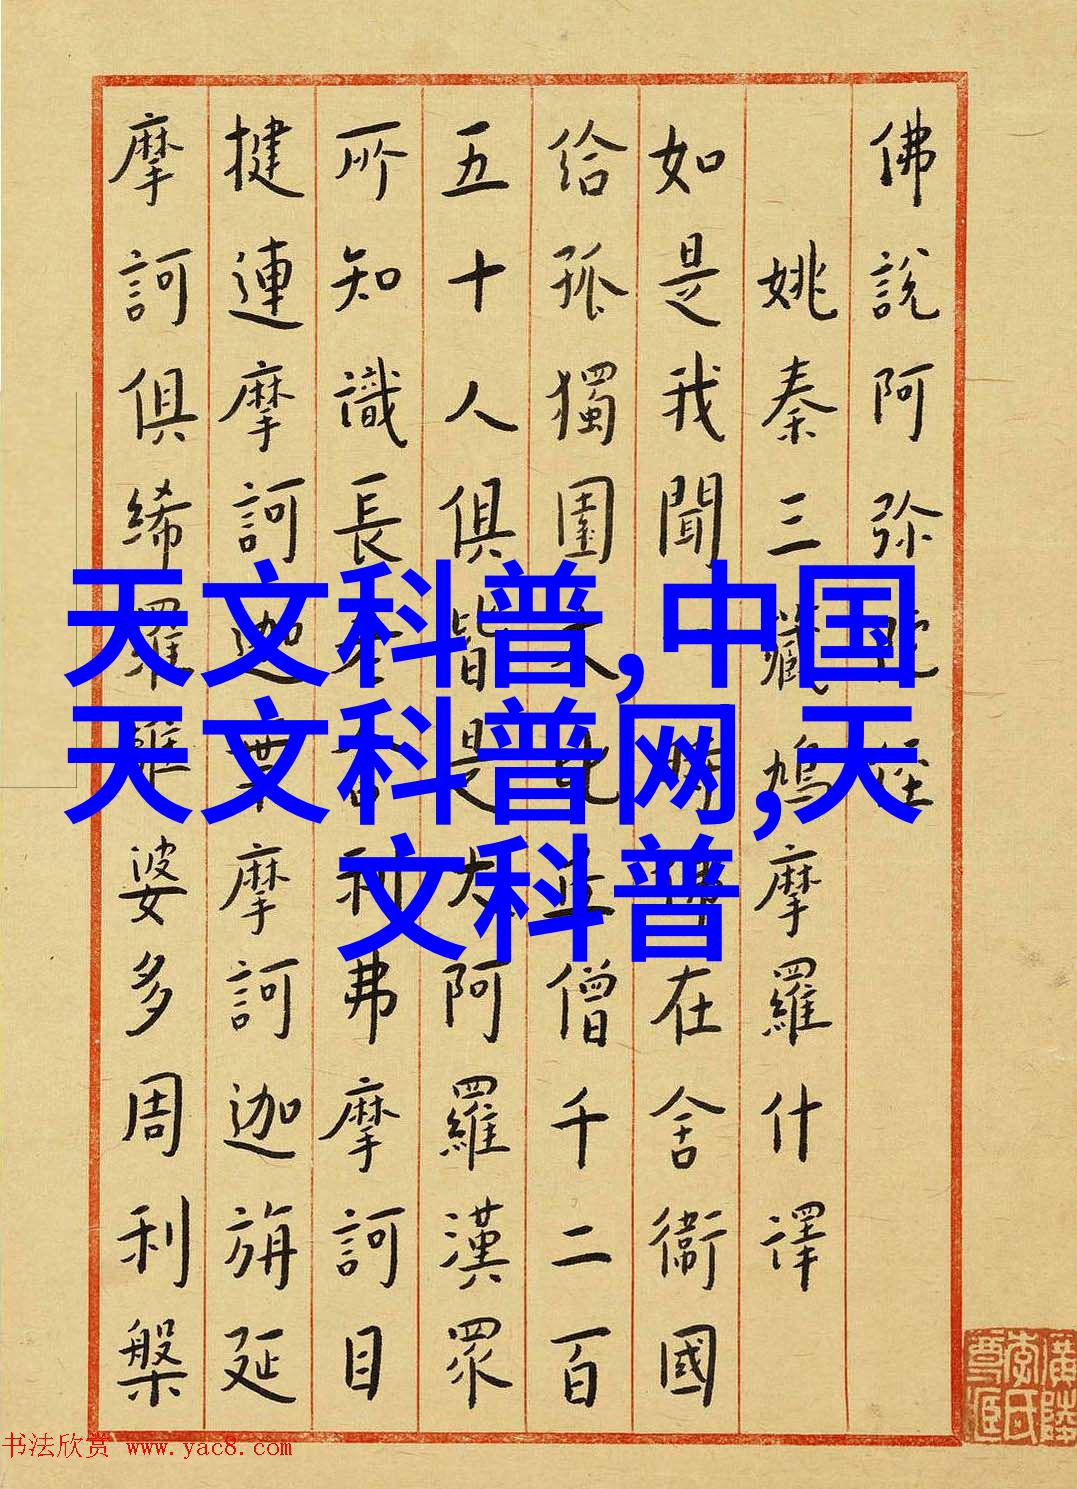 佛說阿弥陀經
姚秦三藏鳩摩羅什譯
如是我聞一時佛在舍衛國
給孤獨園大比丘僧千二百
五十人俱皆是大阿羅漢眾
所知識長老舍利弗摩訶目
揵連摩訶迦葉摩訶迦旃延
摩訶俱絺羅離婆多周利槃
天文科普,中国
天文科普网,天
文科普
书法欣赏 www.yac8.com